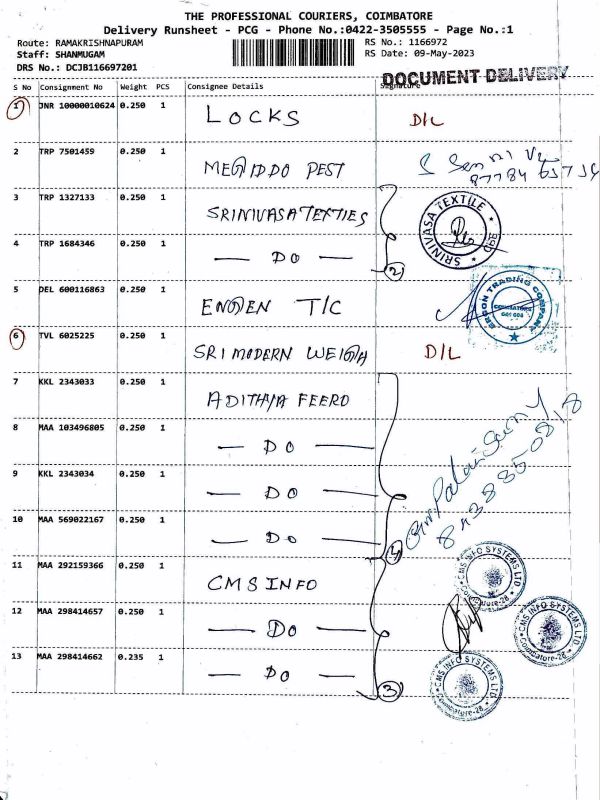 THE PROFESSIONAL COURIERS, COIMBATORE
Delivery Runsheet - PCG - Phone No.:0422-3505555 - Page No.:1
Route: RAMAKRISHNAPURAM RS No.: 1166972
Staff: SHANMUGAM RS Date: 09-May-2023
DRS No.: DCJB116697201
DOCUMENT DELIVERY
S No Consignment No Weight PCS Consignee Details Signature
1 JNR 10000010624 0.250 1 LOCKS D/L
2 TRP 7501459 0.250 1 MEGIDDO PEST
3 TRP 1327133 0.250 1 SRINIVASA TEXTIES
SRINIVASA TEXTILE CBE
4 TRP 1684346 0.250 1 — DO — 2
5 DEL 600116863 0.250 1 ENGEN T/C
ERGON TRADING COMPANY
COIMBATORE
6 TVL 6025225 0.250 1 SRI MODERN WEIGH D/L
7 KKL 2343033 0.250 1 ADITHYA FEERO
8 MAA 103496805 0.250 1 — DO —
9 KKL 2343034 0.250 1 — DO —
8438850818
10 MAA 569022167 0.250 1 — DO — 4
11 MAA 292159366 0.250 1 CMS INFO
CMS INFO SYSTEMS LTD Coimbatore-28
12 MAA 298414657 0.250 1 — DO —
CMS INFO SYSTEMS LTD Coimbatore-28
13 MAA 298414662 0.235 1 — DO — 3
CMS INFO SYSTEMS LTD Coimbatore-28